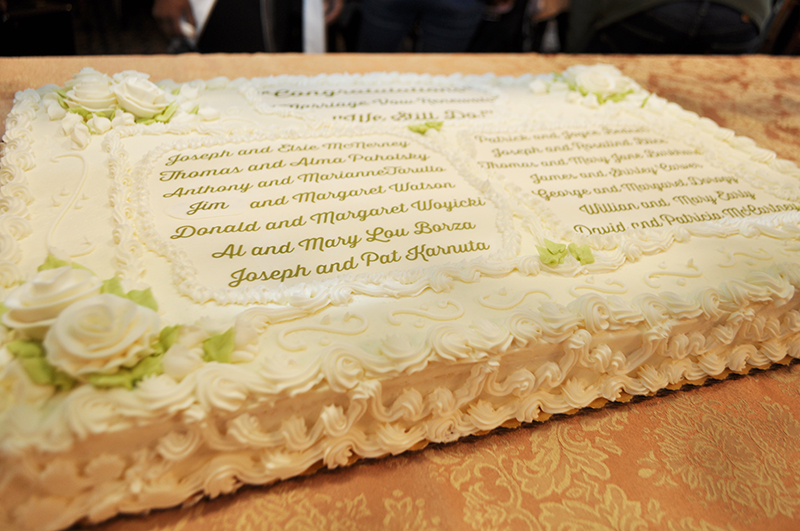 "Congratulations"
"Marriage Vow Renewals"
"We Still Do!"
Joseph and Elsie McNerney
Thomas and Alma Paholsky
Anthony and MarianneTarallo
Jim and Margaret Watson
Donald and Margaret Woyicki
Al and Mary Lou Borza
Joseph and Pat Karnuta
Patrick and Joyce
Joseph and Rosalind
Thomas and Mary Jane
James and Shirley
George and Margaret
Willian and Mary Early
David and Patricia McCartney